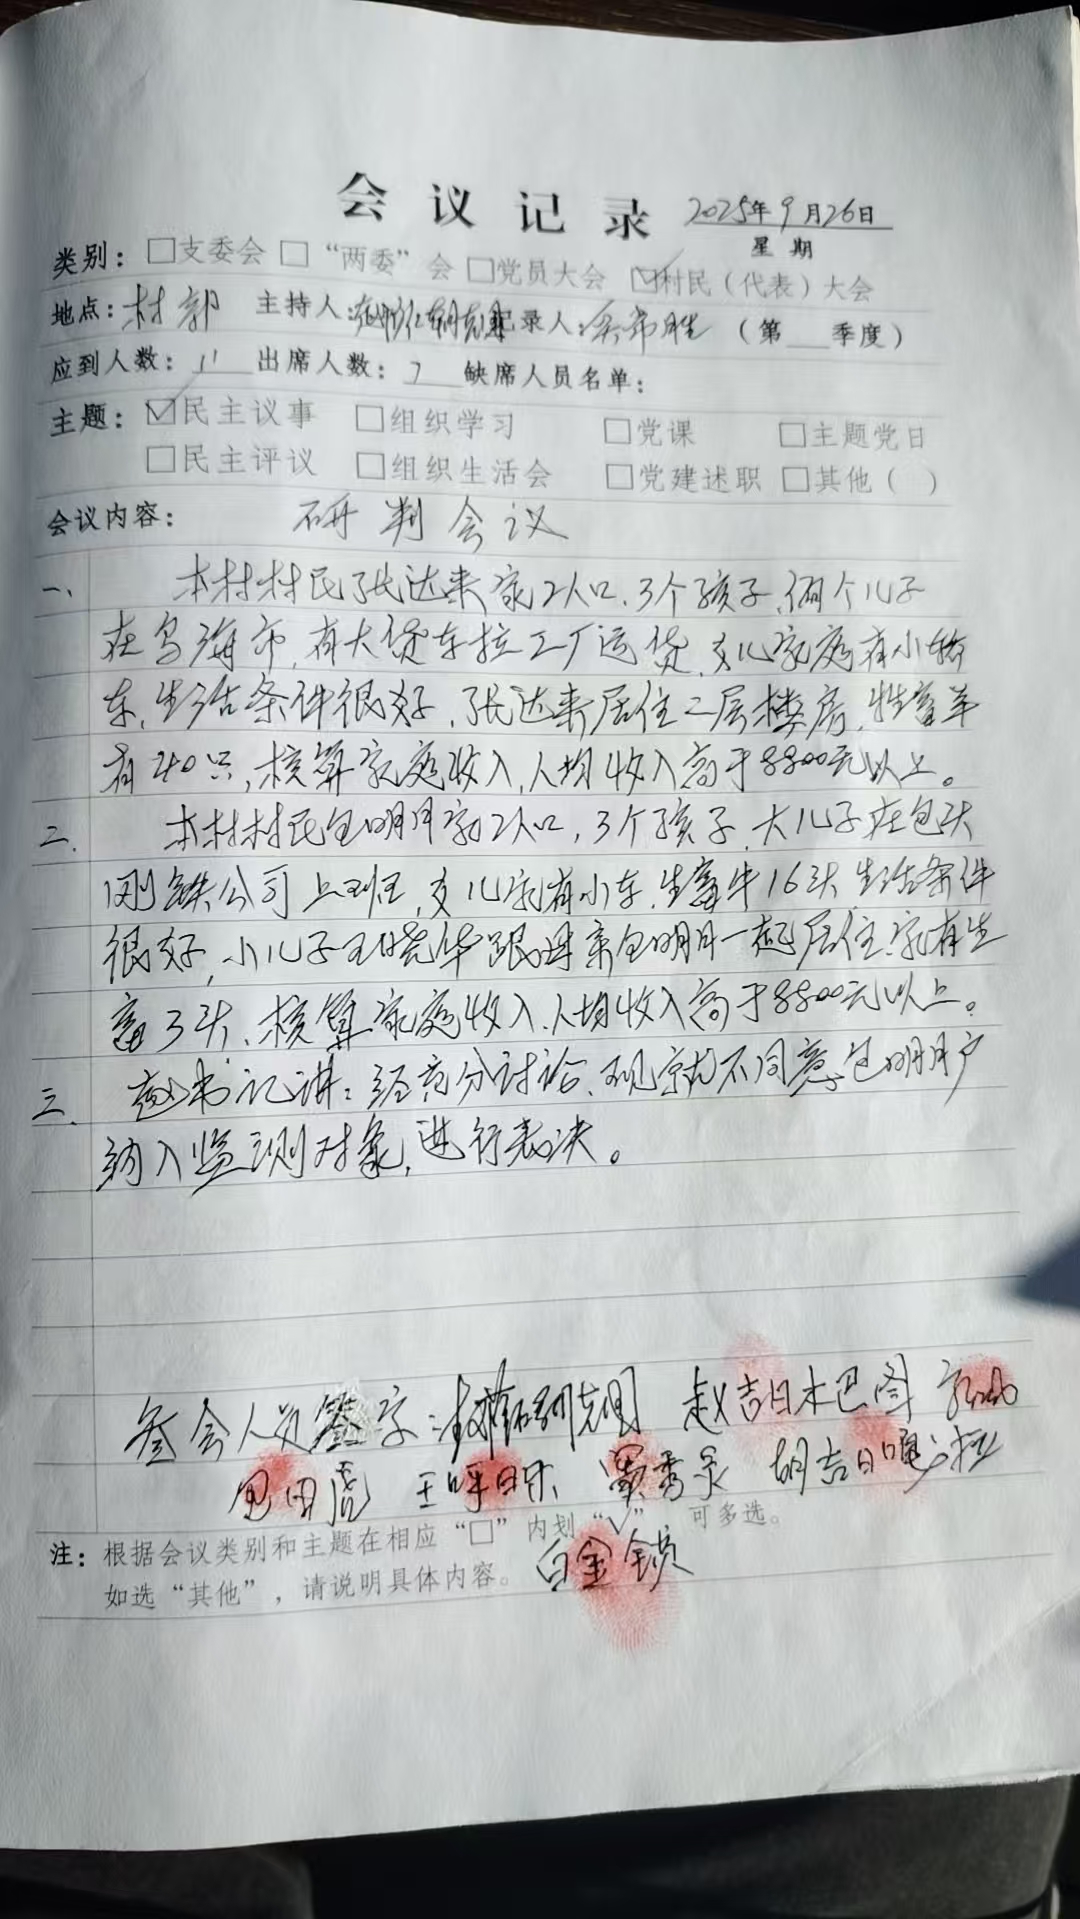 会议记录 2025年9月26日
星期
类别：□支委会 □“两委”会 □党员大会 ☑村民（代表）大会
地点：村部 主持人： 记录人： （第 季度）
应到人数：11 出席人数：7 缺席人员名单：
主题：☑民主议事 □组织学习 □党课 □主题党日
□民主评议 □组织生活会 □党建述职 □其他（ ）
会议内容： 研判会议
一、 本村村民张达来家2人口、3个孩子，俩个儿子
在乌海市，有大货车拉工厂运货，女儿家庭有小轿
车，生活条件很好，张达来居住二层楼房，牲畜羊
有40只，核算家庭收入，人均收入高于8800元以上。
二、 本村村民包明月家2人口，3个孩子，大儿子在包头
刚铁公司上班，女儿家有小车，生畜牛16头，生活条件
很好，小儿子王晓华跟母亲包明月一起居住，家有生
畜3头，核算家庭收入，人均收入高于8800元以上。
三、 赵书记讲：经充分讨论，现就不同意包明月户
纳入监测对象，进行表决。
参会人员签字： 赵吉日木巴图
包田虎 王呼日乐 窦秀泉 胡吉日嘎拉
注：根据会议类别和主题在相应“□”内划“√”，可多选。
如选“其他”，请说明具体内容。 白金锁